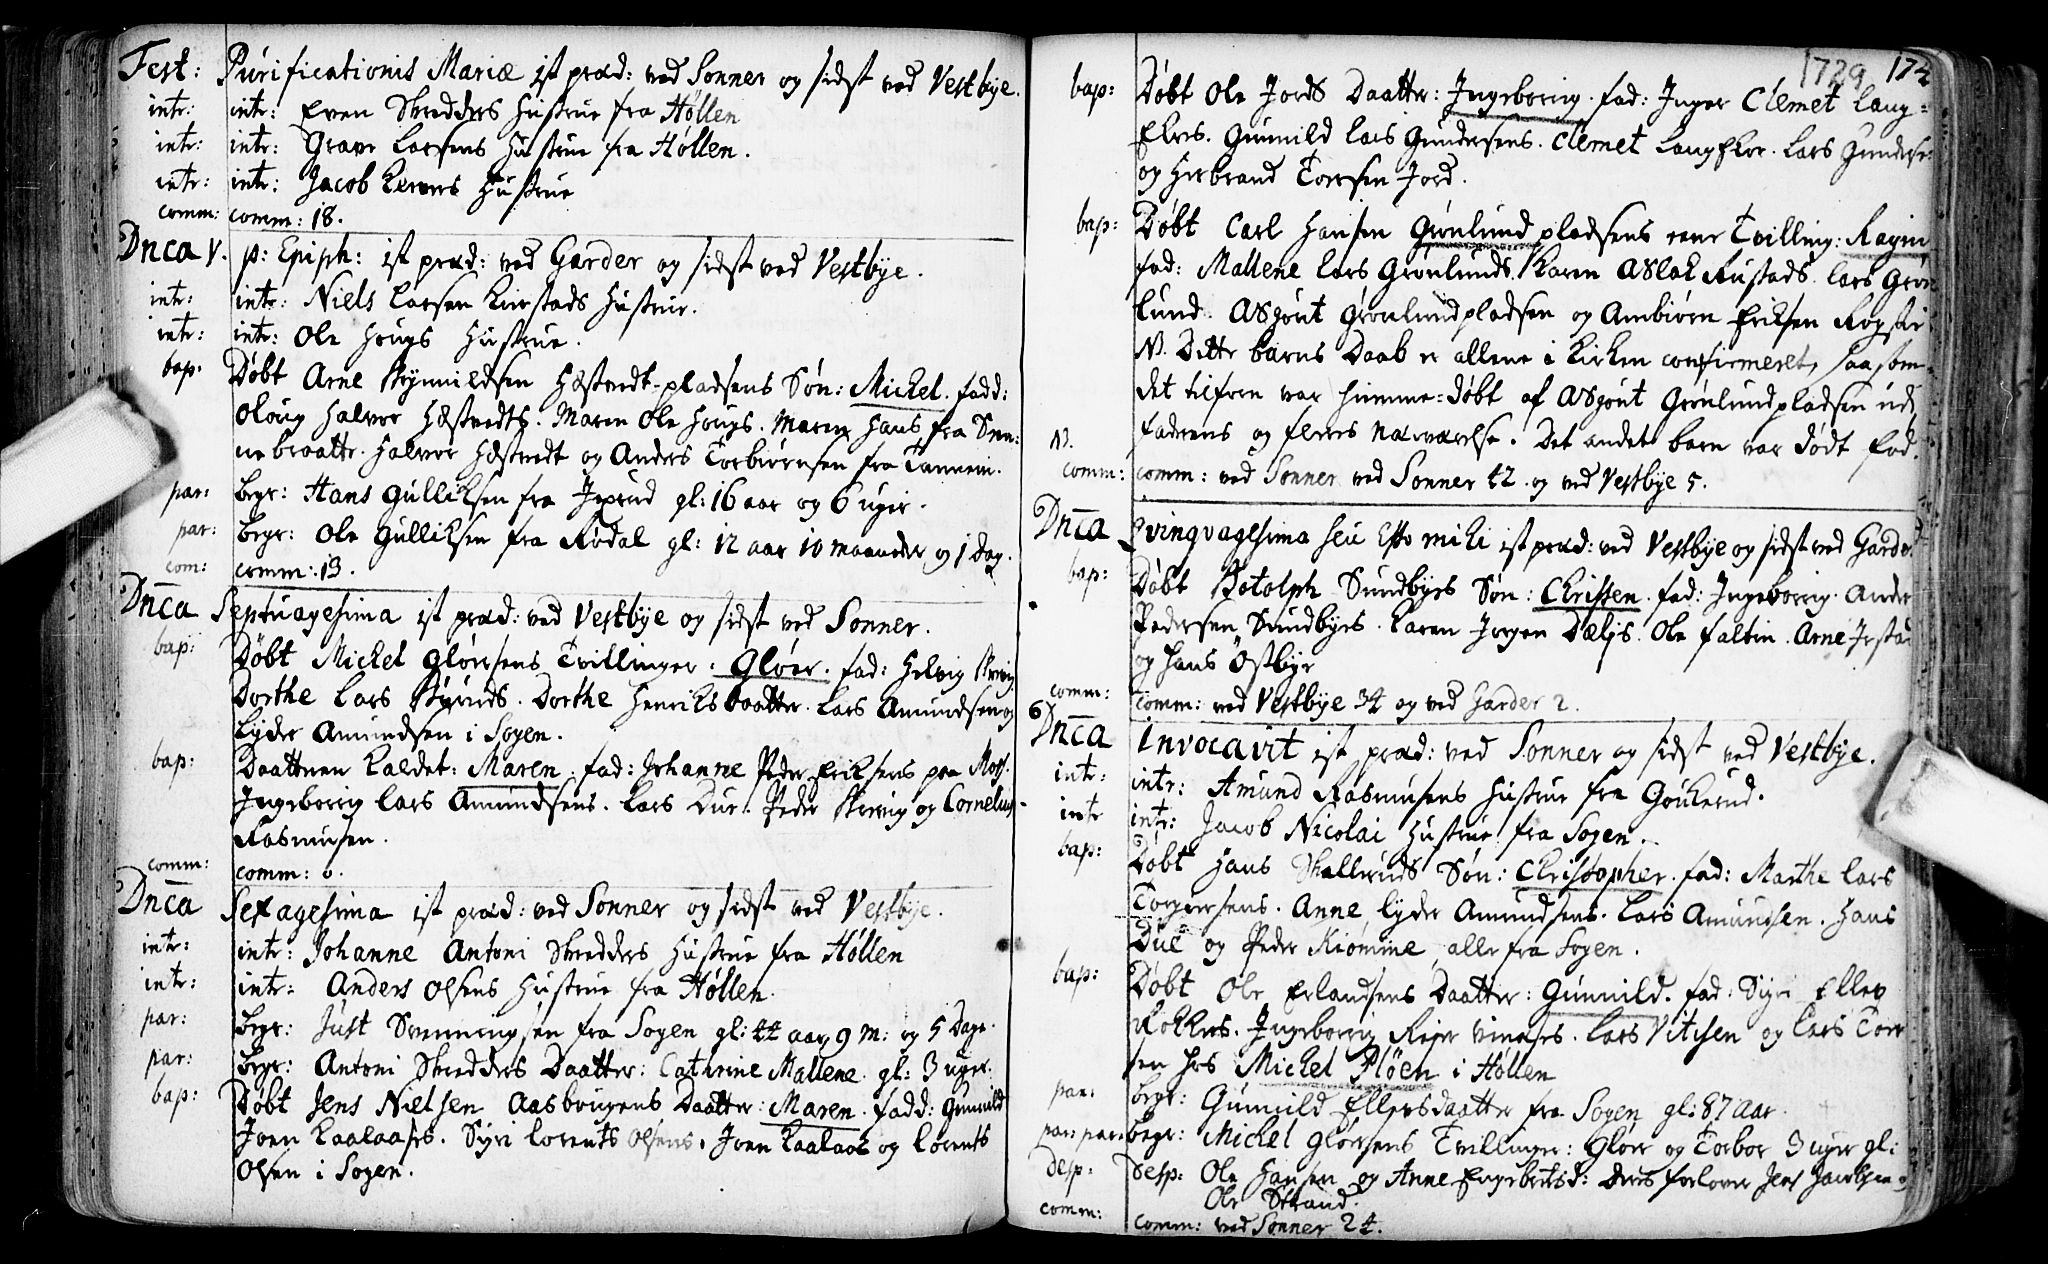 Fest: Purificationis Mariæ ist præd: ved Sonner og sidst ved Vestbye.
intr: intr: Even Skredders Hustrue fra Høllen
intr: intr: Grave Larsens Hustrue fra Høllen.
intr: intr: Jacob Hustrue
comm: comm: 18.
Dnca V. p: Epiph: ist præd: ved Garder og sidst ved Vestbye.
intr: intr: Niels Larsen Hustrue.
intr: intr: Ole Hougs Hustrue.
bap: Døbt Arne Hæstvedt-pladsens Søn: Michel. fadd:
Oloug Halvor Hæstvedts. Maren Ole Hougs. Maren Hans fra
braatte. Halvor Hæstvedt og Anders Torbiørnsen fra
par: Begr: Hans Gulliksen fra gl: 16 aar og 6 uger.
par: Begr: Ole Gulliksen fra Rødal gl: 12 aar 10 maaneder og 1 Dag.
com: comm: 13.
Dnca Septuagesima ist præd: ved Vestbye og sidst ved Sonner.
bap: Døbt Michel Gløersens Tvillinger: Gløer. fad: Helvig
Dorthe Lars Dorthe Henriks Daatter. Lars Amundsen og
Lyder Amundsen i Sogen.
bap: Daatteren kaldet: Maren. fad: Johanne Peder Eriksens paa Moss.
Ingeborrig Lars Amundsens. Lars Due. Peder og Cornelius
Rasmusen.
comm: comm: 0.
Dnca Sexagesima ist præd: ved Sonner og sidst ved Vestbye.
intr: intr: Johanne Antoni Skredders Hustrue fra Høllen
intr: intr: Anders Olsens Hustrue fra Høllen.
par: Begr: Just Svenningsen fra Sogen gl: 44 aar, 9 m: og 5 Dage.
par: Begr: Antoni Skredders Daatter: Cathrine Mallene. gl: 3 uger.
bap: Døbt Jens Nielsen Aasbrigens Daatter: Maren. fadd: Gunnild
Joen Kaalaases. Syri Lorents Olsens. Joen Kaalaas og Lorents
Olsen i Sogen.
1729 174
bap: Døbt Ole Jords Daatter: Ingeborrig. fad: Inger Clemet Laug-
Gunnild Lars Gundersens. Clemet Lars Gunderse
og Herbrand Toresen Jord.
bap: Døbt Carl Hansen Grønlundpladsens eene Tvilling: Kagin
fad: Mallene Lars Grønlunds. Karen Aslak Rustads. Lars Grøn
lund. Asgout Grønlundpladsen og Ambiørn Eriksen
N. Dette barns Daab er allene i Kirken confirmeret, saasom
det tilforn var hiemme-døbt af Asgout Grønlundpladsen udi
N. Faderens og fleres Nærværelse. Det andet barn var dødt fød.
comm: comm: ved Sonner ved Sonner 42 og ved Vestbye 5.
Dnca Qvinqvagesima seu Esto mihi ist præd: ved Vestbye og sidst ved Garder.
bap: Døbt Botolph Sundbyes Søn: Christen. fad: Ingeborrig Anders
Pedersen Sundbyes. Karen Jørgen Dælis. Ole Faltin. Arne
og Hans Østbye
comm: comm: ved Vestbye 34 og ved Garder 2.
6 Dnca Invocavit ist præd: ved Sonner og sidst ved Vestbye.
intr: intr: Amund Rasmusens Hustrue fra Goukerud.
intr intr: Jacob Nicolai Hustrue fra Sogen.
bap: Døbt Hans Skalleruds Søn: Christopher. fad: Marthe Lars
Torgersens. Anne Lyder Amundsens. Lars Amundsen. Hans
Due og Peder Kiømme alle fra Sogen.
bap: Døbt Ole Erlandsens Daatter: Gunnild. fad: Siyri Ellev
Kokkers. Ingeborrig Lars Vitisen og Lars Tore
sen hos Michel Pløen i Høllen
par: Begr: Gunnild Ellevsdaatter fra Sogen gl: 87 Aar.
par: par: Begr: Michel Gløersens Tvillinger: Gløer og Torbor 3 uger gl:
desp: desp: Ole Hansen og Anne Engebretsd: Deres forlover Jens Jacobsen og
Ole Strand.
comm: comm: ved Sonner 24.